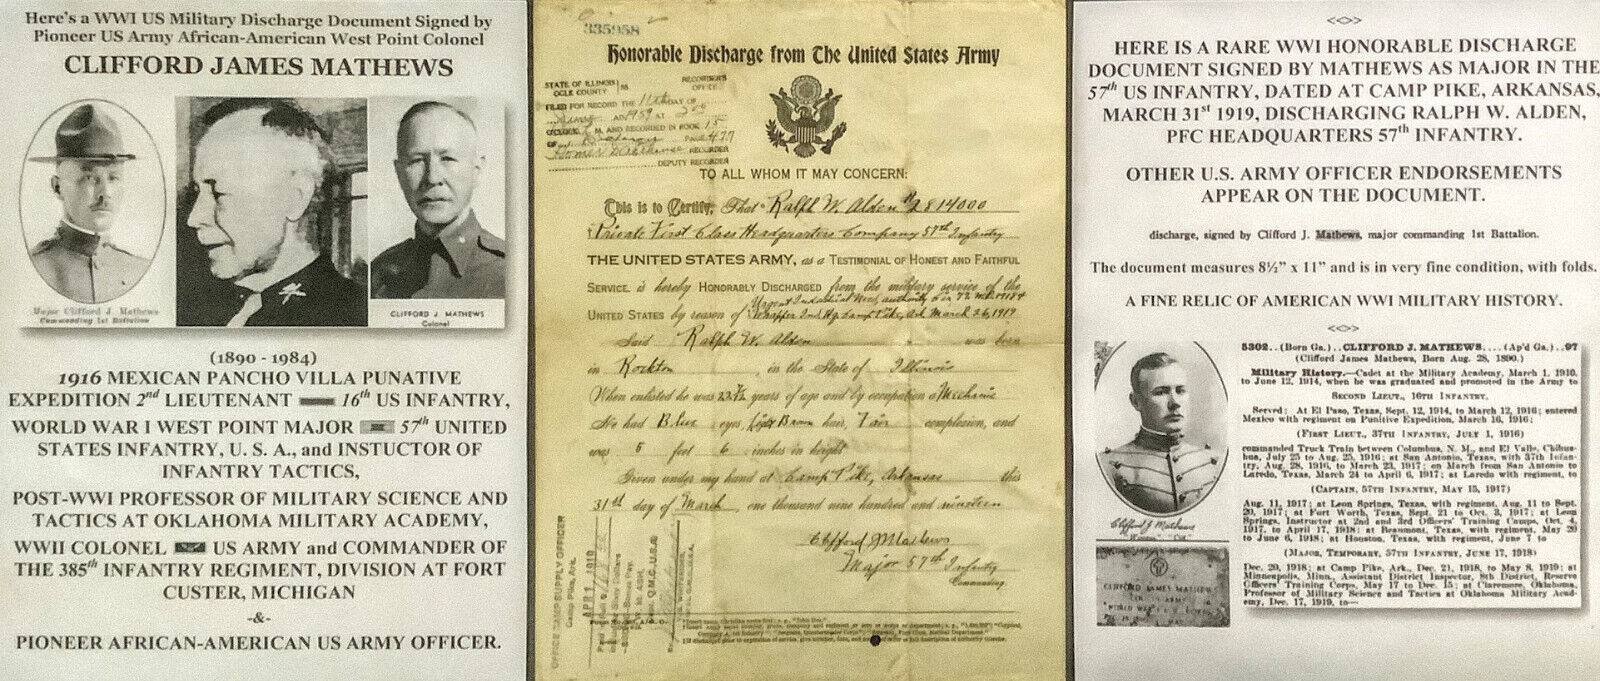 Here's a WWI US Military Discharge Document Signed by
Pioneer US Army African-American West Point Colonel
CLIFFORD JAMES MATHEWS
Major Clifford J. Mathews
Commanding 1st Battalion
CLIFFORD J. MATHEWS
Colonel
(1890 - 1984)
1916 MEXICAN PANCHO VILLA PUNATIVE
EXPEDITION 2nd LIEUTENANT 16th US INFANTRY,
WORLD WAR I WEST POINT MAJOR 57th UNITED
STATES INFANTRY, U. S. A., and INSTUCTOR OF
INFANTRY TACTICS,
POST-WWI PROFESSOR OF MILITARY SCIENCE AND
TACTICS AT OKLAHOMA MILITARY ACADEMY,
WWII COLONEL US ARMY and COMMANDER OF
THE 385th INFANTRY REGIMENT, DIVISION AT FORT
CUSTER, MICHIGAN
-&-
PIONEER AFRICAN-AMERICAN US ARMY OFFICER.
335958
Honorable Discharge from The United States Army
STATE OF ILLINOIS SS RECORDER'S
OGLE COUNTY OFFICE
FILED FOR RECORD THE 11th DAY OF
AD 1959 AT 2:00
O'CLOCK P. M. AND RECORDED IN BOOK 15
OF PAGE 477
RECORDER
DEPUTY RECORDER
TO ALL WHOM IT MAY CONCERN:
This is to Certify, That Ralph W. Alden #2814000
Private First Class Headquarters Company 57th Infantry
THE UNITED STATES ARMY, as a TESTIMONIAL OF HONEST AND FAITHFUL
SERVICE, is hereby HONORABLY DISCHARGED from the military service of the
UNITED STATES by reason of Urgent Industrial Need, authority
Camp Pike, Ark March 26, 1919
Said Ralph W. Alden was born
in Rockton, in the State of Illinois
When enlisted he was 22 7/12 years of age and by occupation a Mechanic
He had Blue eyes, Light Brown hair, Fair complexion, and
was 5 feet 6 inches in height
Given under my hand at Camp Pike, Arkansas this
31st day of March one thousand nine hundred and nineteen
Clifford J Mathews
Major 57th Infantry
Commanding.
OFFICE CAMP SUPPLY OFFICER
Camp Pike, Ark.
APR 1 1919
HERE IS A RARE WWI HONORABLE DISCHARGE
DOCUMENT SIGNED BY MATHEWS AS MAJOR IN THE
57th US INFANTRY, DATED AT CAMP PIKE, ARKANSAS,
MARCH 31st 1919, DISCHARGING RALPH W. ALDEN,
PFC HEADQUARTERS 57th INFANTRY.
OTHER U.S. ARMY OFFICER ENDORSEMENTS
APPEAR ON THE DOCUMENT.
discharge, signed by Clifford J. Mathews, major commanding 1st Battalion.
The document measures 8½" x 11" and is in very fine condition, with folds.
A FINE RELIC OF AMERICAN WWI MILITARY HISTORY.
5302..(Born Ga.)..CLIFFORD J. MATHEWS....(Ap'd Ga.)..97
(Clifford James Mathews, Born Aug. 28, 1890.)
Military History.—Cadet at the Military Academy, March 1, 1910,
to June 12, 1914, when he was graduated and promoted in the Army to
SECOND LIEUT., 16TH INFANTRY.
Served: At El Paso, Texas, Sept. 12, 1914, to March 12, 1916; entered
Mexico with regiment on Punitive Expedition, March 16, 1916;
(FIRST LIEUT., 37TH INFANTRY, JULY 1, 1916)
commanded Truck Train between Columbus, N. M., and El Valle, Chihua-
hua, July 25 to Aug. 25, 1916; at San Antonio, Texas, with 37th Infan-
try, Aug. 28, 1916, to March 23, 1917; on March from San Antonio to
Laredo, Texas, March 24 to April 6, 1917; at Laredo with regiment, to
(CAPTAIN, 57TH INFANTRY, MAY 15, 1917)
Aug. 11, 1917; at Leon Springs, Texas, with regiment, Aug. 11 to Sept.
20, 1917; at Fort Worth, Texas, Sept. 21 to Oct. 3, 1917; at Leon
Springs, Instructor at 2nd and 3rd Officers' Training Camps, Oct. 4,
1917, to April 17, 1918; at Beaumont, Texas, with regiment, May 20
to June 6, 1918; at Houston, Texas, with regiment, June 7 to
(MAJOR, TEMPORARY, 57TH INFANTRY, JUNE 17, 1918)
Dec. 20, 1918; at Camp Pike, Ark., Dec. 21, 1918, to May 8, 1919; at
Minneapolis, Minn., Assistant District Inspector, 8th District, Reserve
Officers' Training Corps, May 17 to Dec. 15; at Claremore, Oklahoma,
Professor of Military Science and Tactics at Oklahoma Military Acad-
emy, Dec. 17, 1919, to—
Clifford J. Mathews
CLIFFORD JAMES MATHEWS